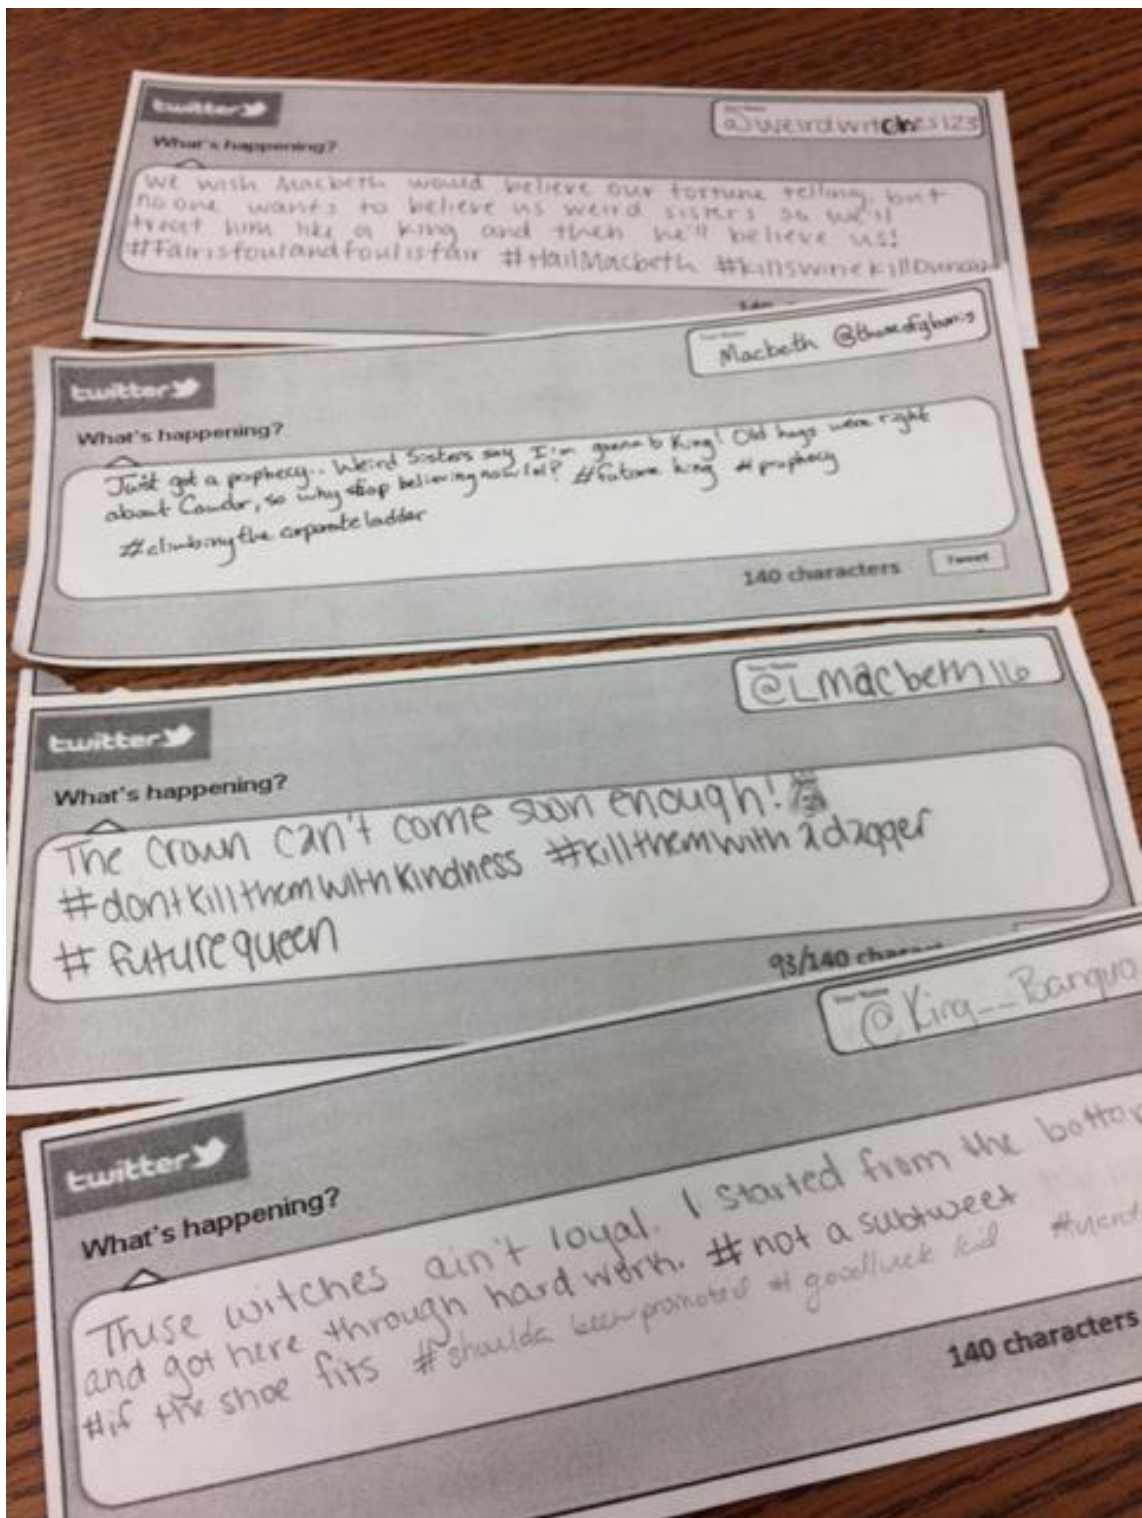 twitter
@weirdwitches123
What's happening?
We wish Macbeth would believe our fortune telling, but
no one wants to believe us weird sisters so we'll
treat him like a king and then he'll believe us!
#fairisfoulandfoulisfair #HailMacbeth #killswinekillDuncan
140
Your Name
Macbeth @thaneofglamis
twitter
What's happening?
Just got a prophecy.. Weird Sisters say I'm gonna b King! Old hags were right
about Cawdor, so why stop believing now lol? #future king #prophecy
#climbing the corporate ladder
140 characters
Tweet
Your Name
@LMacbeth116
twitter
What's happening?
The crown can't come soon enough!
#dontkillthemwithkindness #killthemwithadagger
#futurequeen
93/140
Your Name
@King__Banquo
twitter
What's happening?
These witches ain't loyal. I started from the botto
and got here through hard work. #not a subtweet
#if the shoe fits #shoulda been promoted #goodluck kid
140 characters